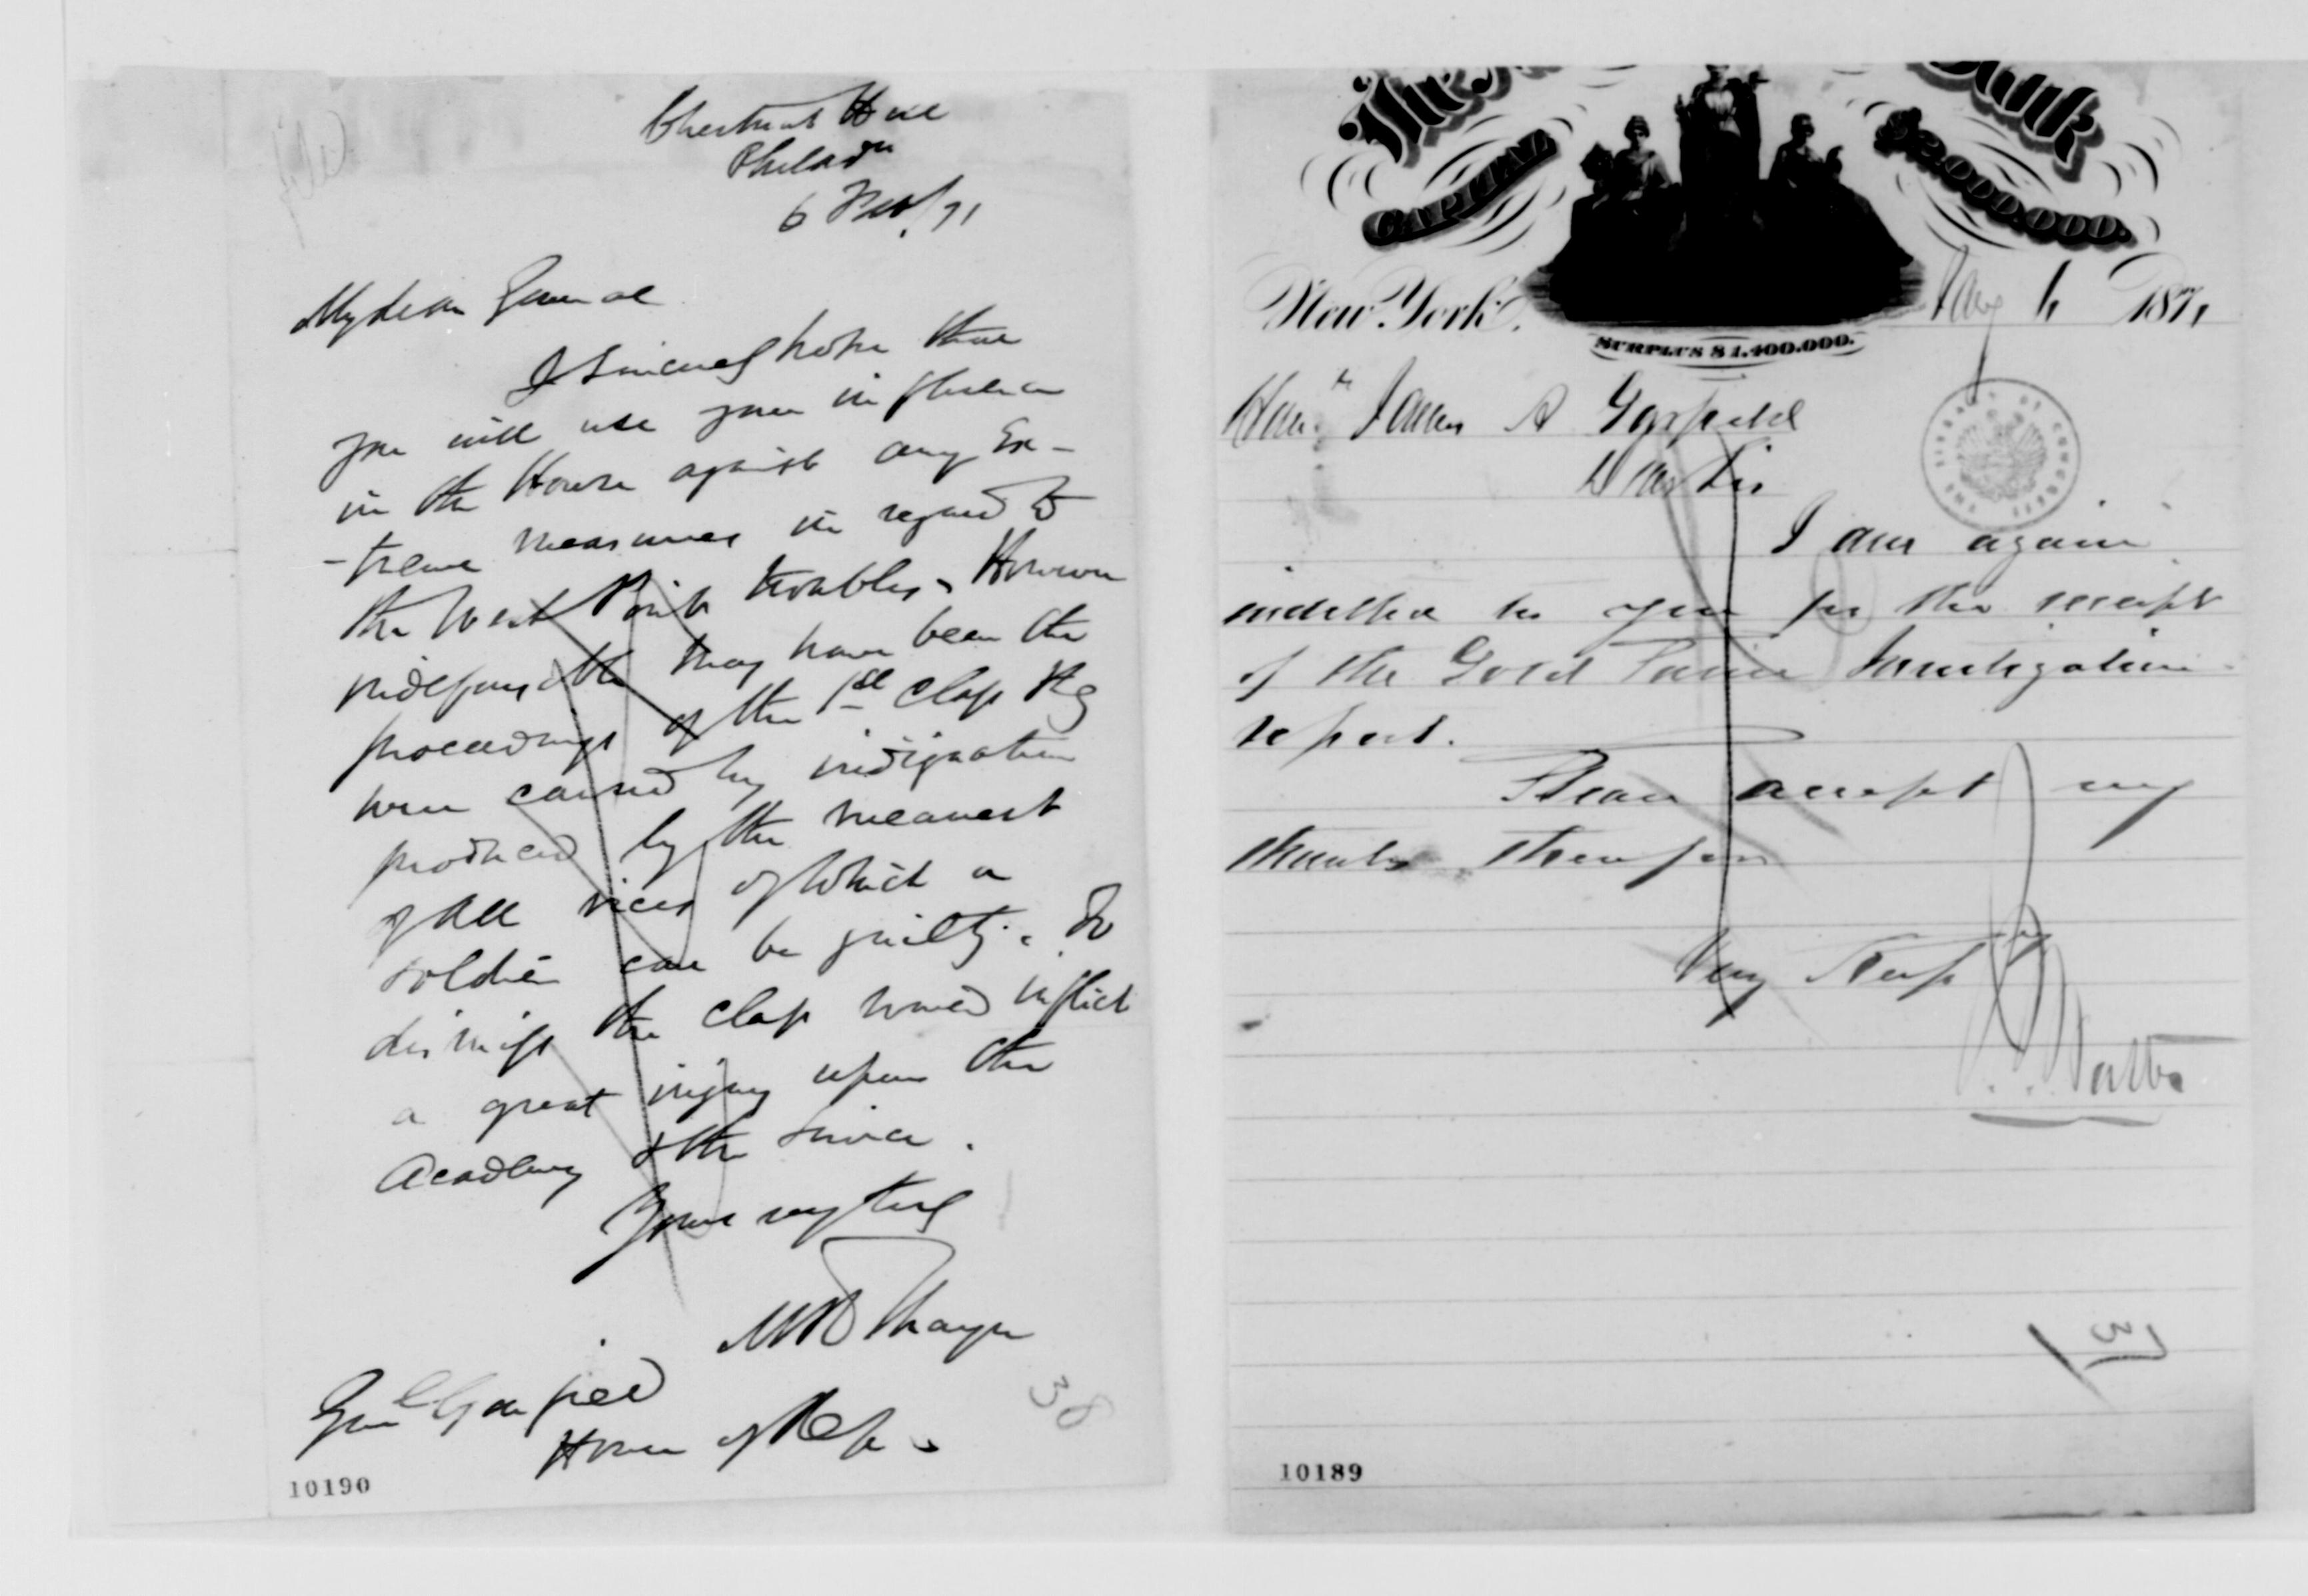 Chestnut Hill
Philada
6 /71
My dear General
I sincerely hope that
you will use your influence
in the House against any Ex-
-treme measures in regard to
the West Point troubles. However
indefensible may have been the
proceedings of the 1st Class they
were caused by indignation
produced by the meanest
of all vices of which a
soldier can be guilty. To
dismiss the class would inflict
a great injury upon the
Academy & the service.
Yours very truly
M R Thayer
Genl Garfield
House of Reps.
38
10190
Bank
CAPITAL
$2,000,000.
New York,
6 1871
SURPLUS $1,400,000.
Hon. James A Garfield
Dear Sir
I am again
indebted to you for the receipt
of the Gold Panic Investigation
report.
Please accept my
thanks therefor
Very Resp
37
10189